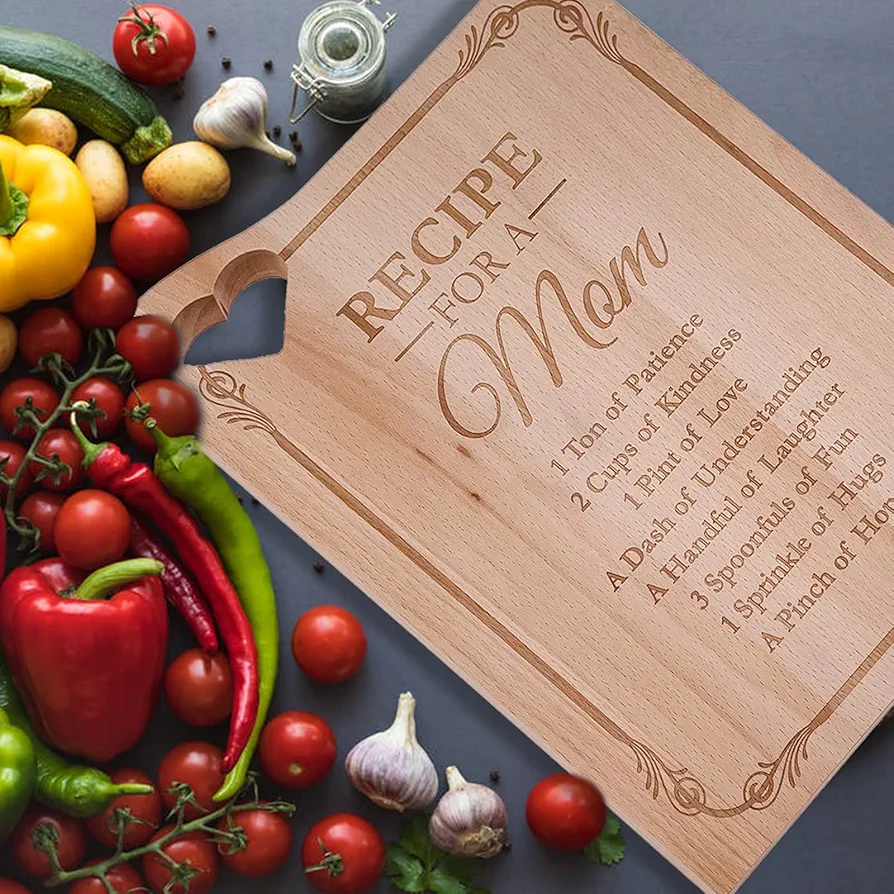 RECIPE
FOR A
Mom
1 Ton of Patience
2 Cups of Kindness
1 Pint of Love
A Dash of Understanding
A Handful of Laughter
3 Spoonfuls of Fun
1 Sprinkle of Hugs
A Pinch of